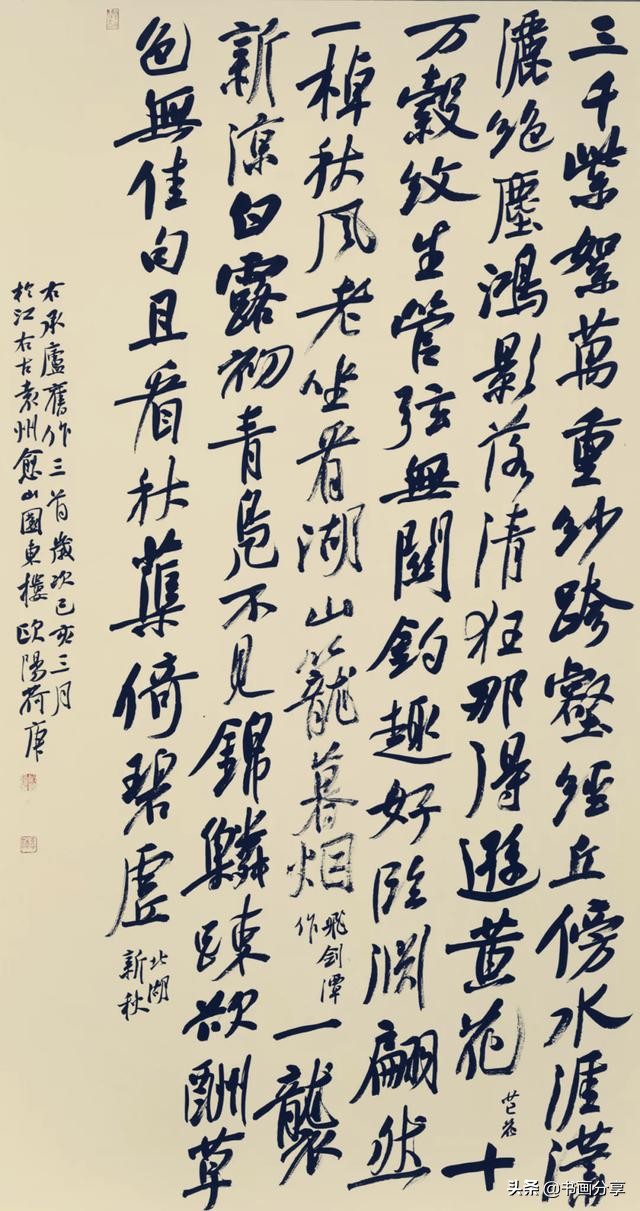 三千紫絮萬重紗跨壑經丘傍水涯瀟
灑絶塵鴻影落清狂那得遜黄花 芒花 十
万縠紋生管弦無關釣趣好臨淵翩然
一棹秋風老坐看湖山籠暮烟 飛劍潭作 一襲
新凉白露初青鳧不見錦鱗踈欲酬草
色無佳句且看秋蕖倚碧虚 北湖新秋
右承廬舊作三首歲次己亥三月
於江右古袁州愈山園東樓歐陽荷庚
头条 @书画分享